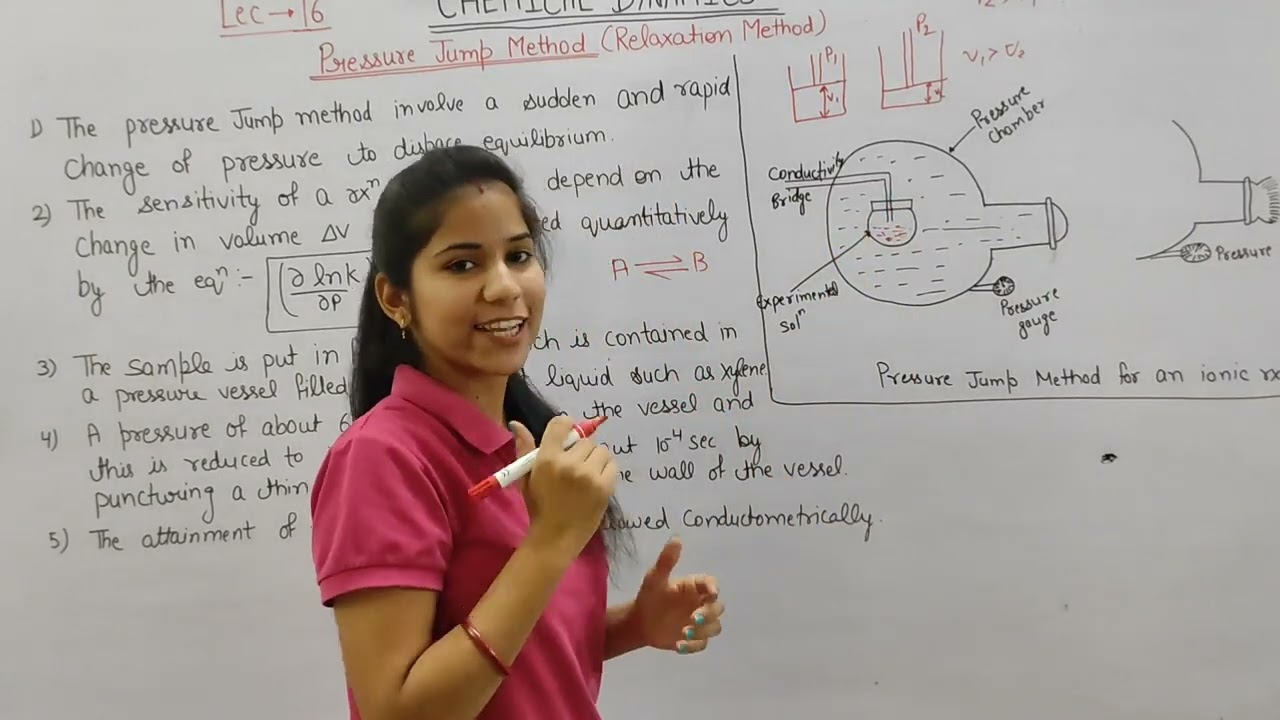 Lec → 16
CHEMICAL DYNAMICS
Pressure Jump Method (Relaxation Method)
1) The pressure Jump method involve a sudden and rapid
Change of pressure to disbace equilibrium.
2) The sensitivity of a rxⁿ depend on the
Change in volume ΔV quantitatively
by the eqⁿ :- (∂ lnk / ∂P
A ⇌ B
3) The sample is put in is contained in
a pressure vessel filled liquid such as xylene
4) A pressure of about 6 the vessel and
this is reduced to 10⁻⁴ sec by
puncturing a thin wall of the vessel.
5) The attainment of Conductometrically.
P₁
V₁
P₂
V₁ > V₂
Pressure
chamber
Conductivity
Bridge
Experimental
solⁿ
Pressure
gauge
Pressure
Pressure Jump Method for an ionic rx